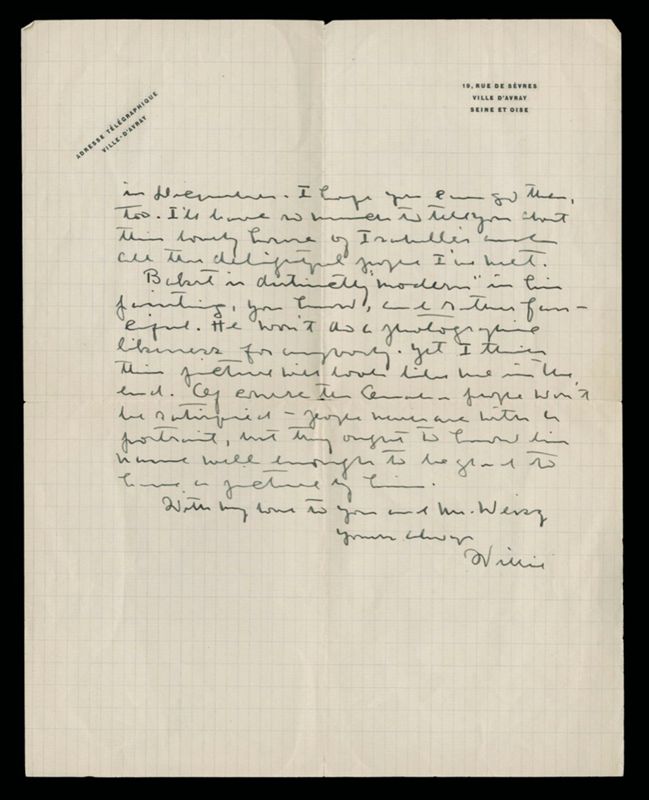 ADRESSE TÉLÉGRAPHIQUE
VILLE-D'AVRAY
19, RUE DE SÈVRES
VILLE D'AVRAY
SEINE ET OISE
in December. I hope you can go then,
too. I'll have so much to tell you about
this lovely home of Isabelle's and
all the delightful people I've met.
Bakst is distinctly "modern" in his
painting, you know, and rather fan-
ciful. He won't do a photographic
likeness for anybody. Yet I think
this picture will look like me in the
end. Of course the Omaha people won't
be satisfied - people never are with a
portrait, but they ought to know his
name well enough to be glad to
have a picture by him.
With my love to you and Mr. Weisz
Yours always
Willie